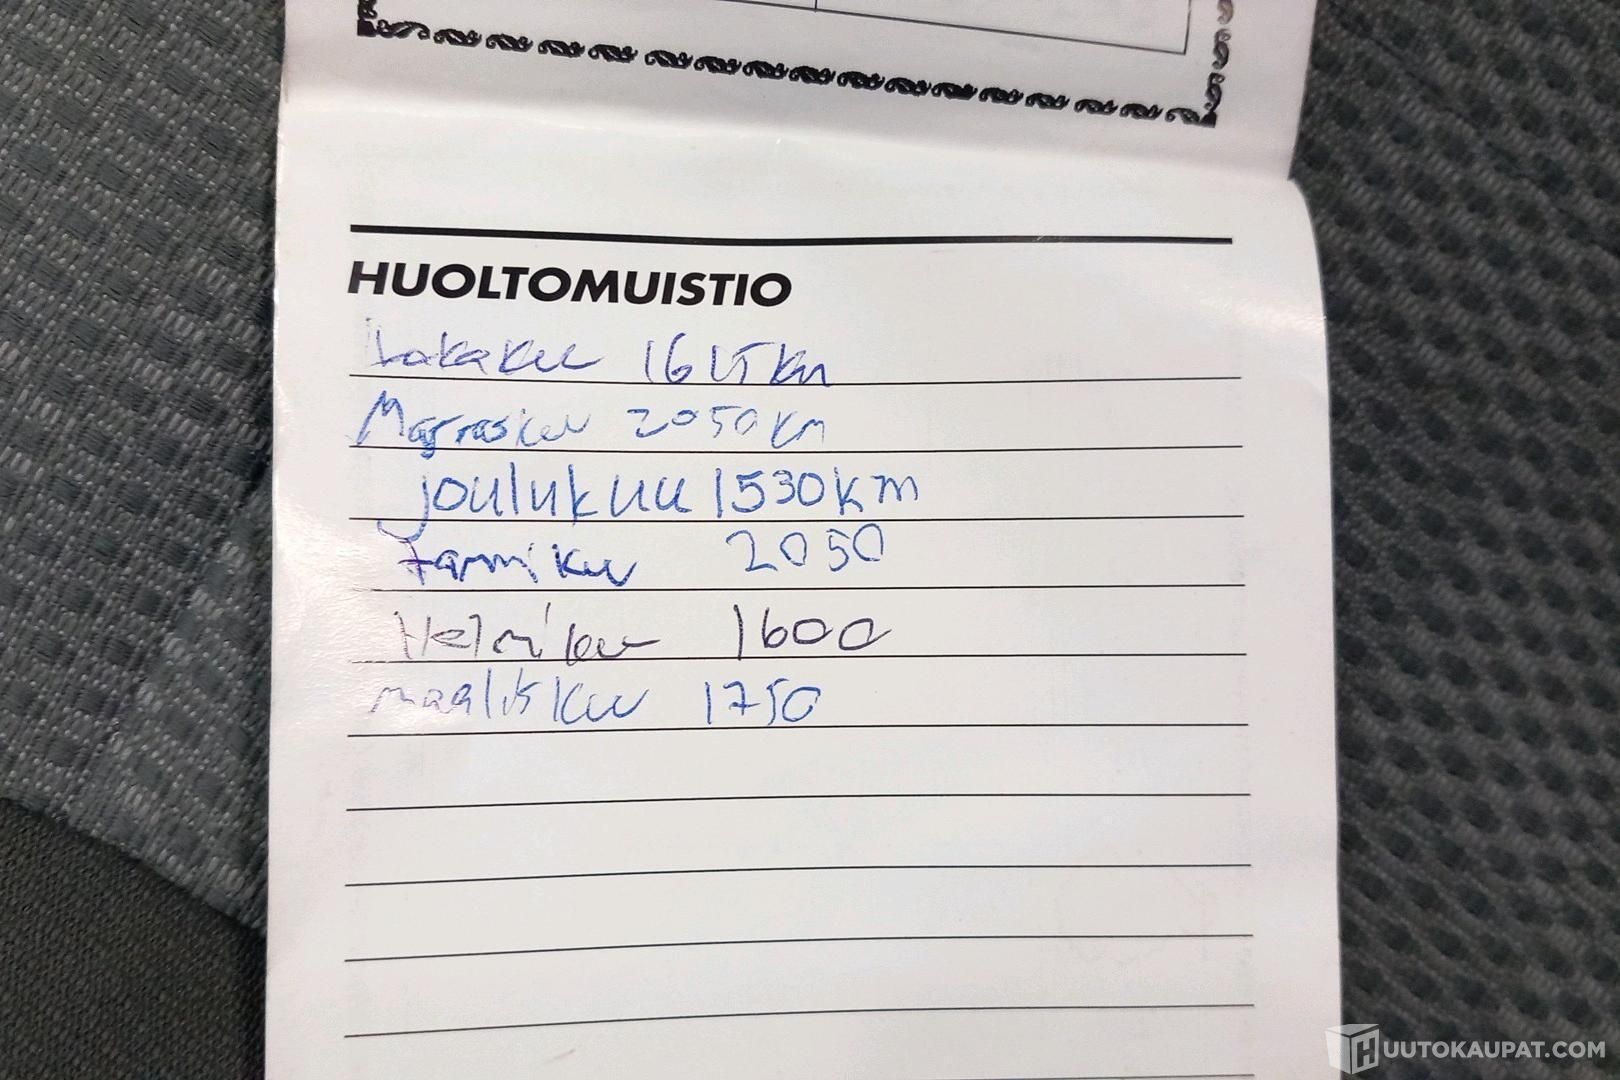 HUOLTOMUISTIO
Lokakuu 1615 km
Marraskuu 2050 km
joulukuu 1530 km
Tammikuu 2050
Helmikuu 1600
maaliskuu 1750
HUUTOKAUPAT.COM